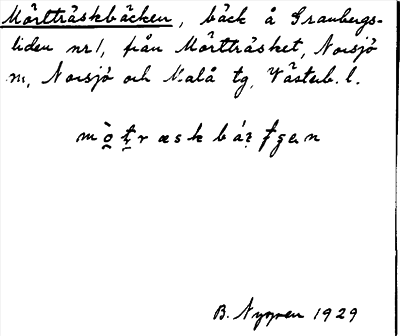 Mörtträskbäcken, bäck å Granbergs-
liden nr 1, från Mörtträsket, Norsjö
sn, Norsjö och Malå tg, Västerb. l.
B. Nygren 1929